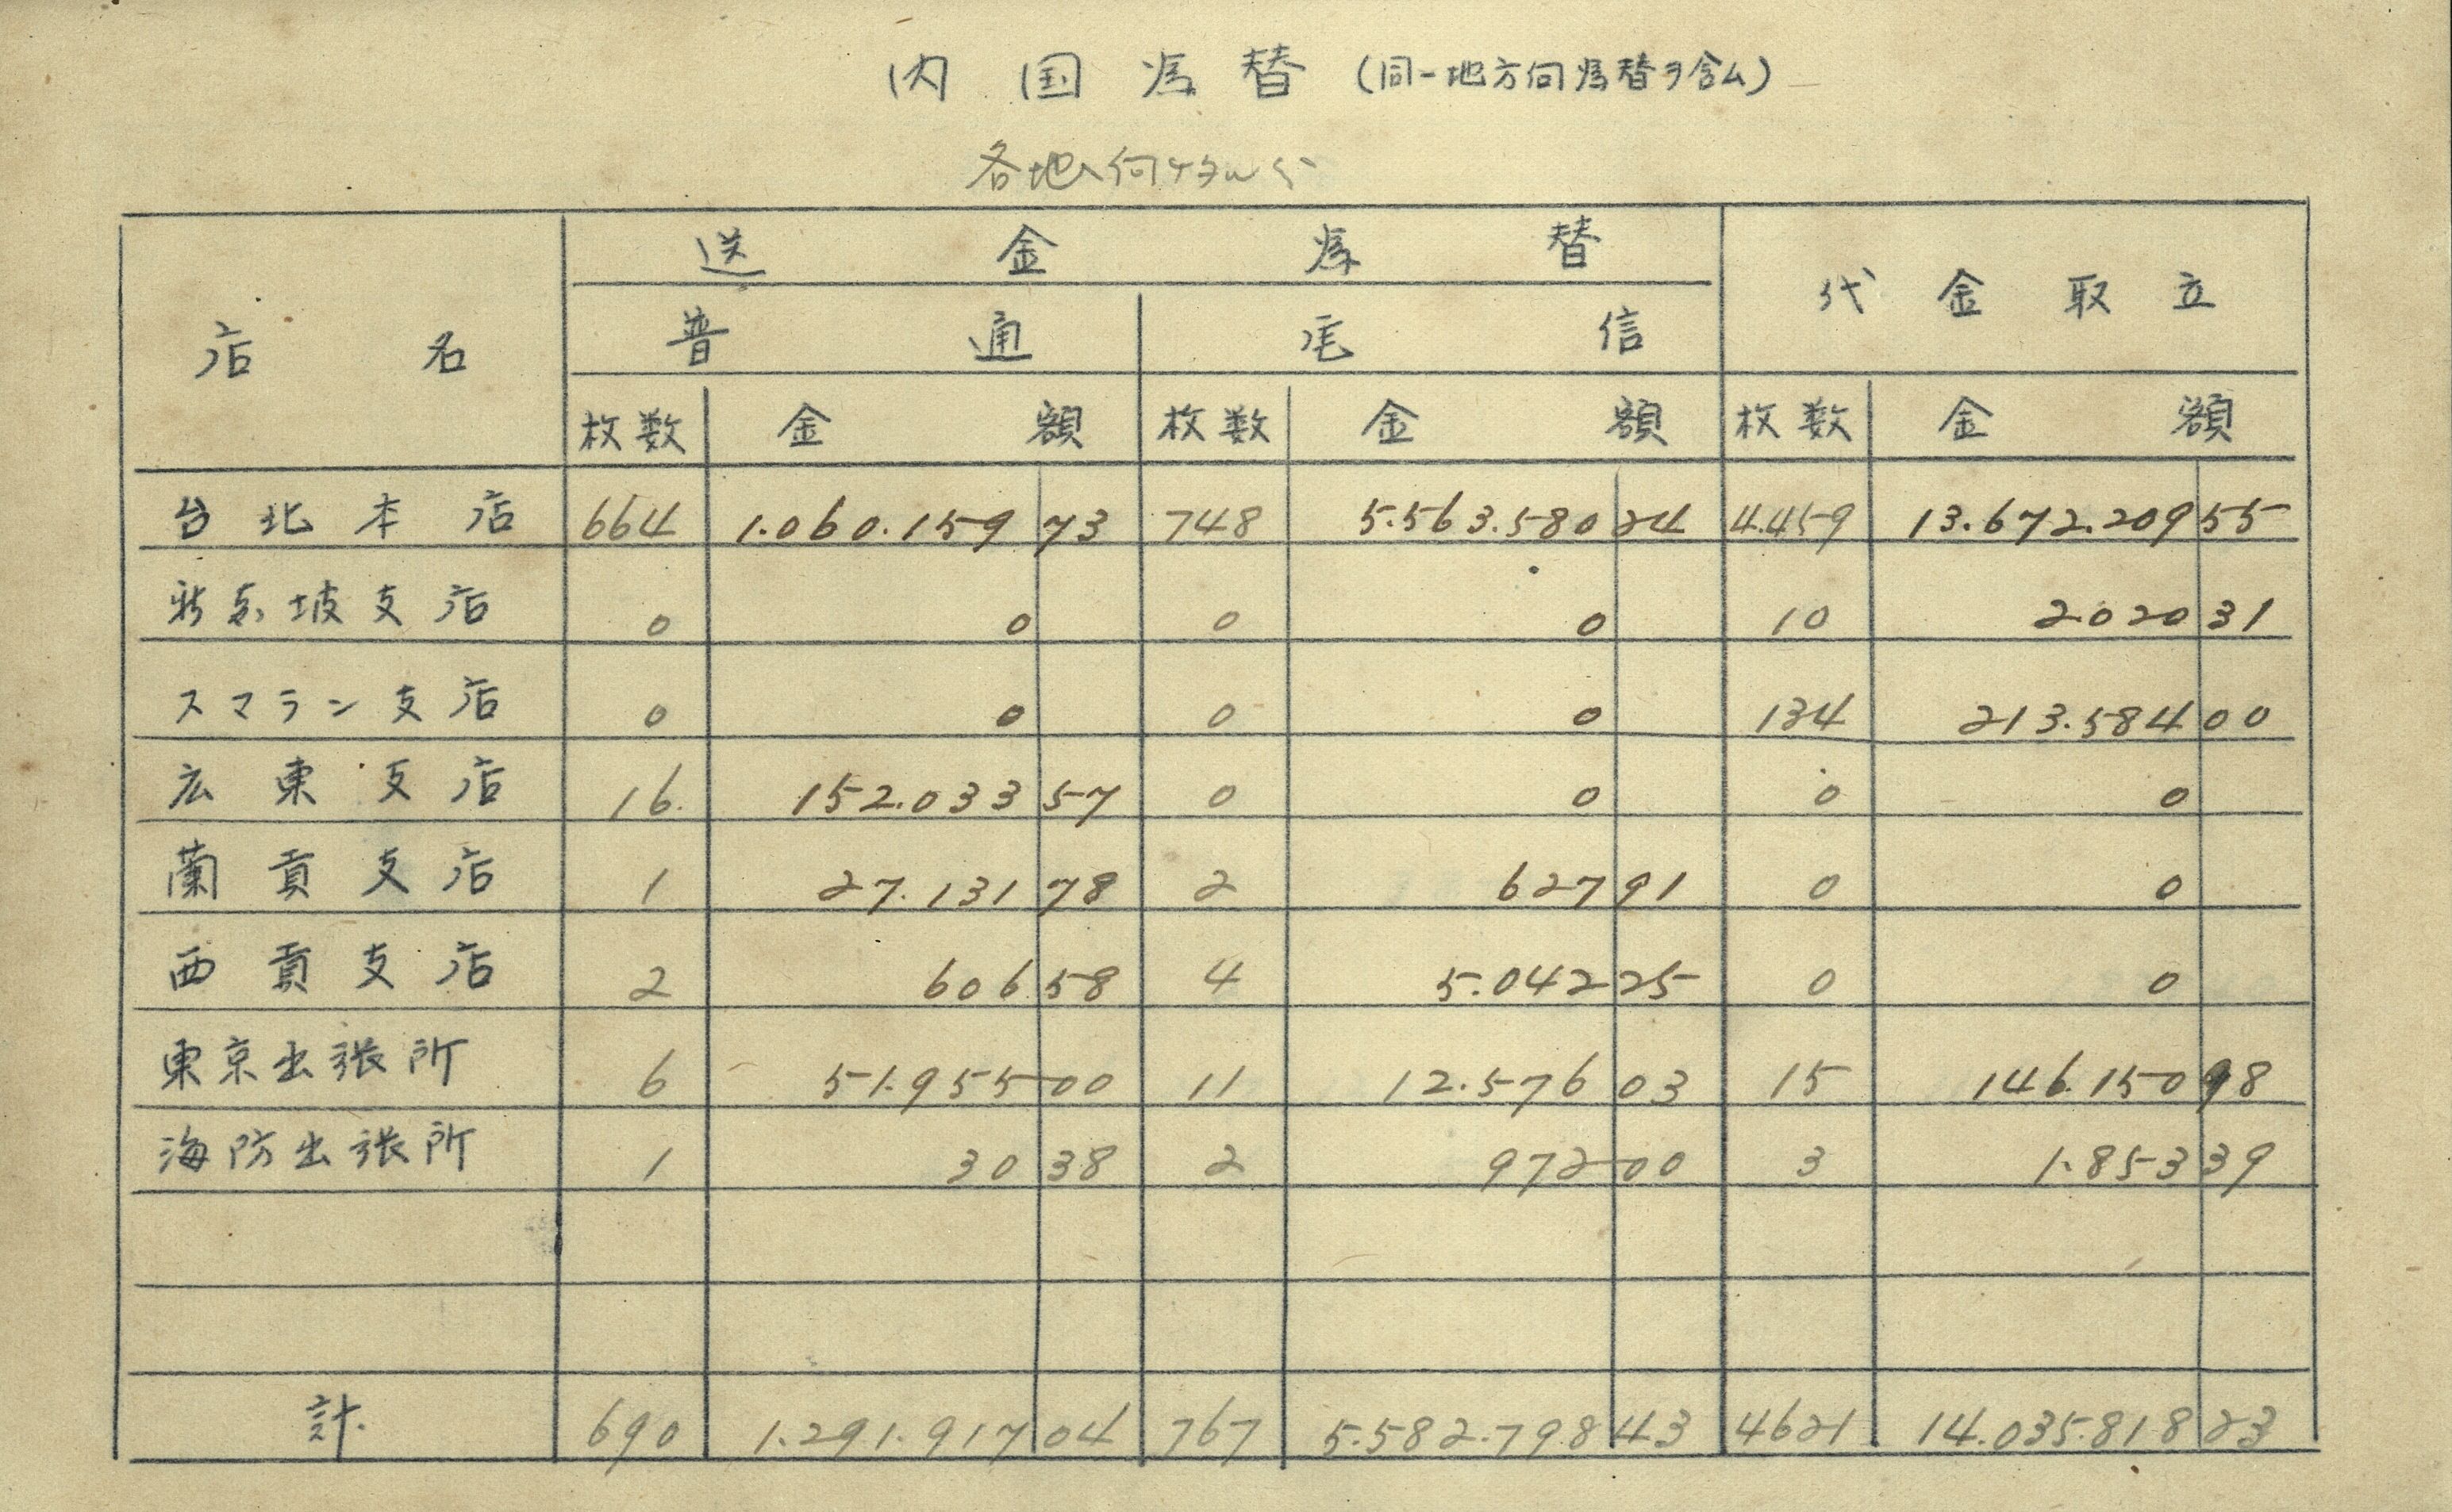 内国為替(同一地方向為替ヲ含ム)
各地ヘ向ケタル分
店名 送金為替 代金取立
普通 电信
枚数 金額 枚数 金額 枚数 金額
台北本店 664 1.060.159 73 748 5.563.580 24 4.459 13.672.209 55
新嘉坡支店 0 0 0 0 10 2.020 31
スマラン支店 0 0 0 0 134 213.584 00
広東支店 16 152.033 57 0 0 0 0
蘭貢支店 1 27.131 78 2 627 91 0 0
西貢支店 2 606 58 4 5.042 25 0 0
東京出張所 6 51.955 00 11 12.576 03 15 146.150 98
海防出張所 1 30 38 2 972 00 3 1.853 39
計 690 1.291.917 04 767 5.582.798 43 4621 14.035.818 23